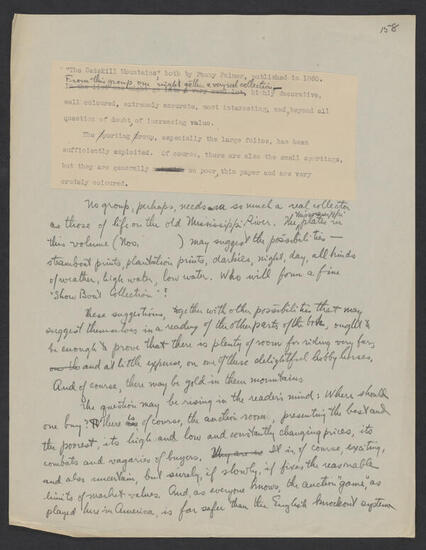 158
"The Catskill Mountains" both by Fanny Palmer, published in 1860.
From this group, one might gather a very real collection—
highly decorative,
well coloured, extremely accurate, most interesting, and, beyond all
question of doubt, of increasing value.
The sporting group, especially the large folios, has been
sufficiently exploited. Of course, there are also the small sportings,
but they are generally so poor, thin paper and are very
crudely coloured.
No group, perhaps, needs so much a real collector
as those of life on the old Mississippi River. The Mississippi plates in
this volume (Nos. ) may suggest the possibilities—
steamboat prints, plantation prints, darkies, night, day, all kinds
of weather, high water, low water. Who will form a fine
"Show Boat Collection"?
These suggestions, together with other possibilities that may
suggest themselves in a reading of the other parts of the book, ought to
be enough to prove that there is plenty of room for riding very far,
and at little expense, on one of these delightful hobby horses.
And of course, there may be gold in them mountains
The question may be rising in the reader's mind: Where should
one buy? There is of course, the auction room, presenting the best and
the poorest, its high and low and constantly changing prices, its
combats and vagaries of buyers. It is of course, exciting,
and also uncertain, but surely, if slowly, it fixes the reasonable
limits of market values. And, as everyone knows, the auction "game" as
played here in America, is far safer than the English knockout system